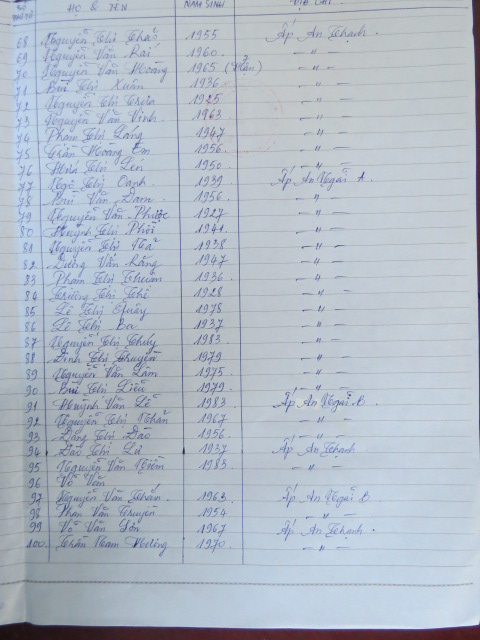 HỌ & TÊN NĂM SINH ĐỊA CHỈ
68 Nguyễn Thị Thắ 1955 Ấp An Thạnh.
69 Nguyễn Văn Rai 1960 - " -
70 Nguyễn Văn Hoàng 1965 (Mẫn) - " -
71 Bùi Thị Xuân 1936 - " -
72 Nguyễn Thị 1925 - " -
73 Nguyễn Văn Vinh 1963 - " -
74 Phạm Thị Lang 1947 - " -
75 Trần Hoàng Em 1956 - " -
76 Hứa Thị Lến 1950 - " -
77 Ngô Thị Oanh 1939 Ấp An Ngãi A.
78 Bùi Văn Đam 1956 - " -
79 Nguyễn Văn Phước 1927 - " -
80 Huỳnh Thị Phôi 1941 - " -
81 Nguyễn Thị Ná 1938 - " -
82 Dương Văn Răng 1947 - " -
83 Phan Thị Thuấn 1936 - " -
84 Trương Thị Thê 1928 - " -
85 Lê Thị 1978 - " -
86 Lê Thị Ba 1937 - " -
87 Nguyễn Thị Thủy 1983 - " -
88 Đinh Thị Truyền 1979 - " -
89 Nguyễn Văn Lâm 1975 - " -
90 Bùi Thị Liễu 1979 - " -
91 Huỳnh Văn Lế 1983 Ấp An Ngãi B.
92 Nguyễn Thị Nhẫn 1967 - " -
93 Đặng Thị Đào 1956 - " -
94 Đào Thị Lá 1937 Ấp An Thạnh
95 Nguyễn Văn Niệm 1983 - " -
96 Võ Văn
97 Nguyễn Văn Thắm. 1963 Ấp An Ngãi B
98 Phan Văn Truyền 1954 - " -
99 Võ Văn Lớn 1967 Ấp An Thạnh.
100 Trần Nam Hường 1970 - " -